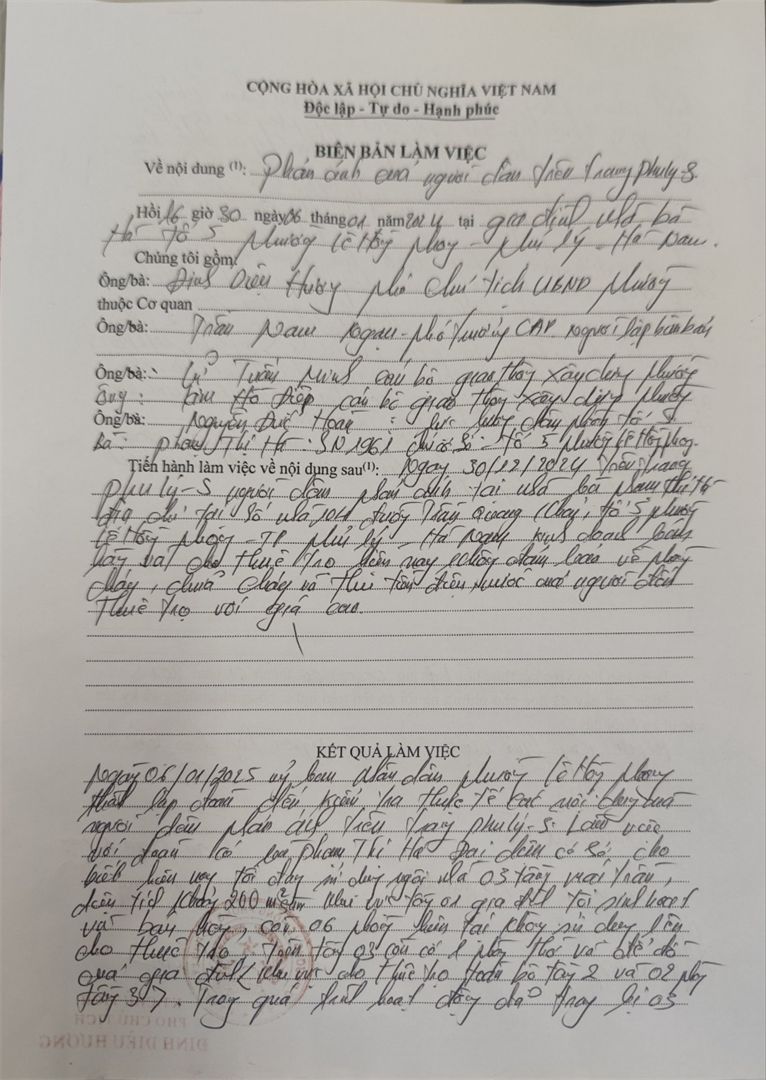 CỘNG HÒA XÃ HỘI CHỦ NGHĨA VIỆT NAM
Độc lập - Tự do - Hạnh phúc
BIÊN BẢN LÀM VIỆC
Về nội dung (1): Phản ánh của người dân trên trang Phuly-S.
Hồi 16 giờ 30 ngày 06 tháng 01 năm 2024 tại gia đình nhà bà
Hà Tổ 5 Phường Lê Hồng Phong - Phủ Lý - Hà Nam.
Chúng tôi gồm:
Ông/bà: Đinh Diệu Hương phó chủ tịch UBND Phường
thuộc Cơ quan
Ông/bà: Trần Nam Ngạn - phó trưởng CAP. Người lập biên bản
Ông/bà: Tuấn Minh cán bộ giao thông xây dựng phường
Ông: Hồ Điệp cán bộ giao thông xây dựng phường
Ông/bà: Nguyễn Đức Hoàn : lực lượng dân phòng tổ 5
Bà: Phạm Thị Hà: SN 1961 Tổ 5 phường Lê Hồng Phong.
Tiến hành làm việc về nội dung sau(1): Ngày 30/12/2024 trên trang
Phuly-S người dân phản ánh tại nhà bà Phạm Thị Hà
địa chỉ tại số nhà đường Trần Quang Khải, tổ 5 phường
Lê Hồng Phong - TP Phủ Lý - Hà Nam kinh doanh bán
hàng và cho thuê trọ hiện nay không đảm bảo về phòng
cháy, chữa cháy và thu tiền điện, nước của người dân
thuê trọ với giá cao.
KẾT QUẢ LÀM VIỆC
Ngày 06/01/2025 uỷ ban nhân dân phường Lê Hồng Phong
thành lập đoàn đến kiểm tra thực tế các nội dung của
người dân phản ánh trên trang Phuly-S. Làm việc
với đoàn có bà Phạm Thị Hà Đại diện cơ sở, cho
biết hiện nay tôi đang sử dụng ngôi nhà 03 tầng mái trần,
diện tích khoảng 200 m² khu vực tầng 01 gia đình tôi sinh hoạt
và bán hàng, còn 06 phòng hiện tại không sử dụng lên
cho thuê trọ, trên tầng 03 còn có 1 phòng thờ và để đồ
của gia đình (khu vực cho thuê trọ toàn bộ tầng 2 và 02 phòng
tầng 3). Trong quá trình hoạt động đã trang bị 03
PHÓ CHỦ TỊCH
ĐINH DIỆU HƯƠNG